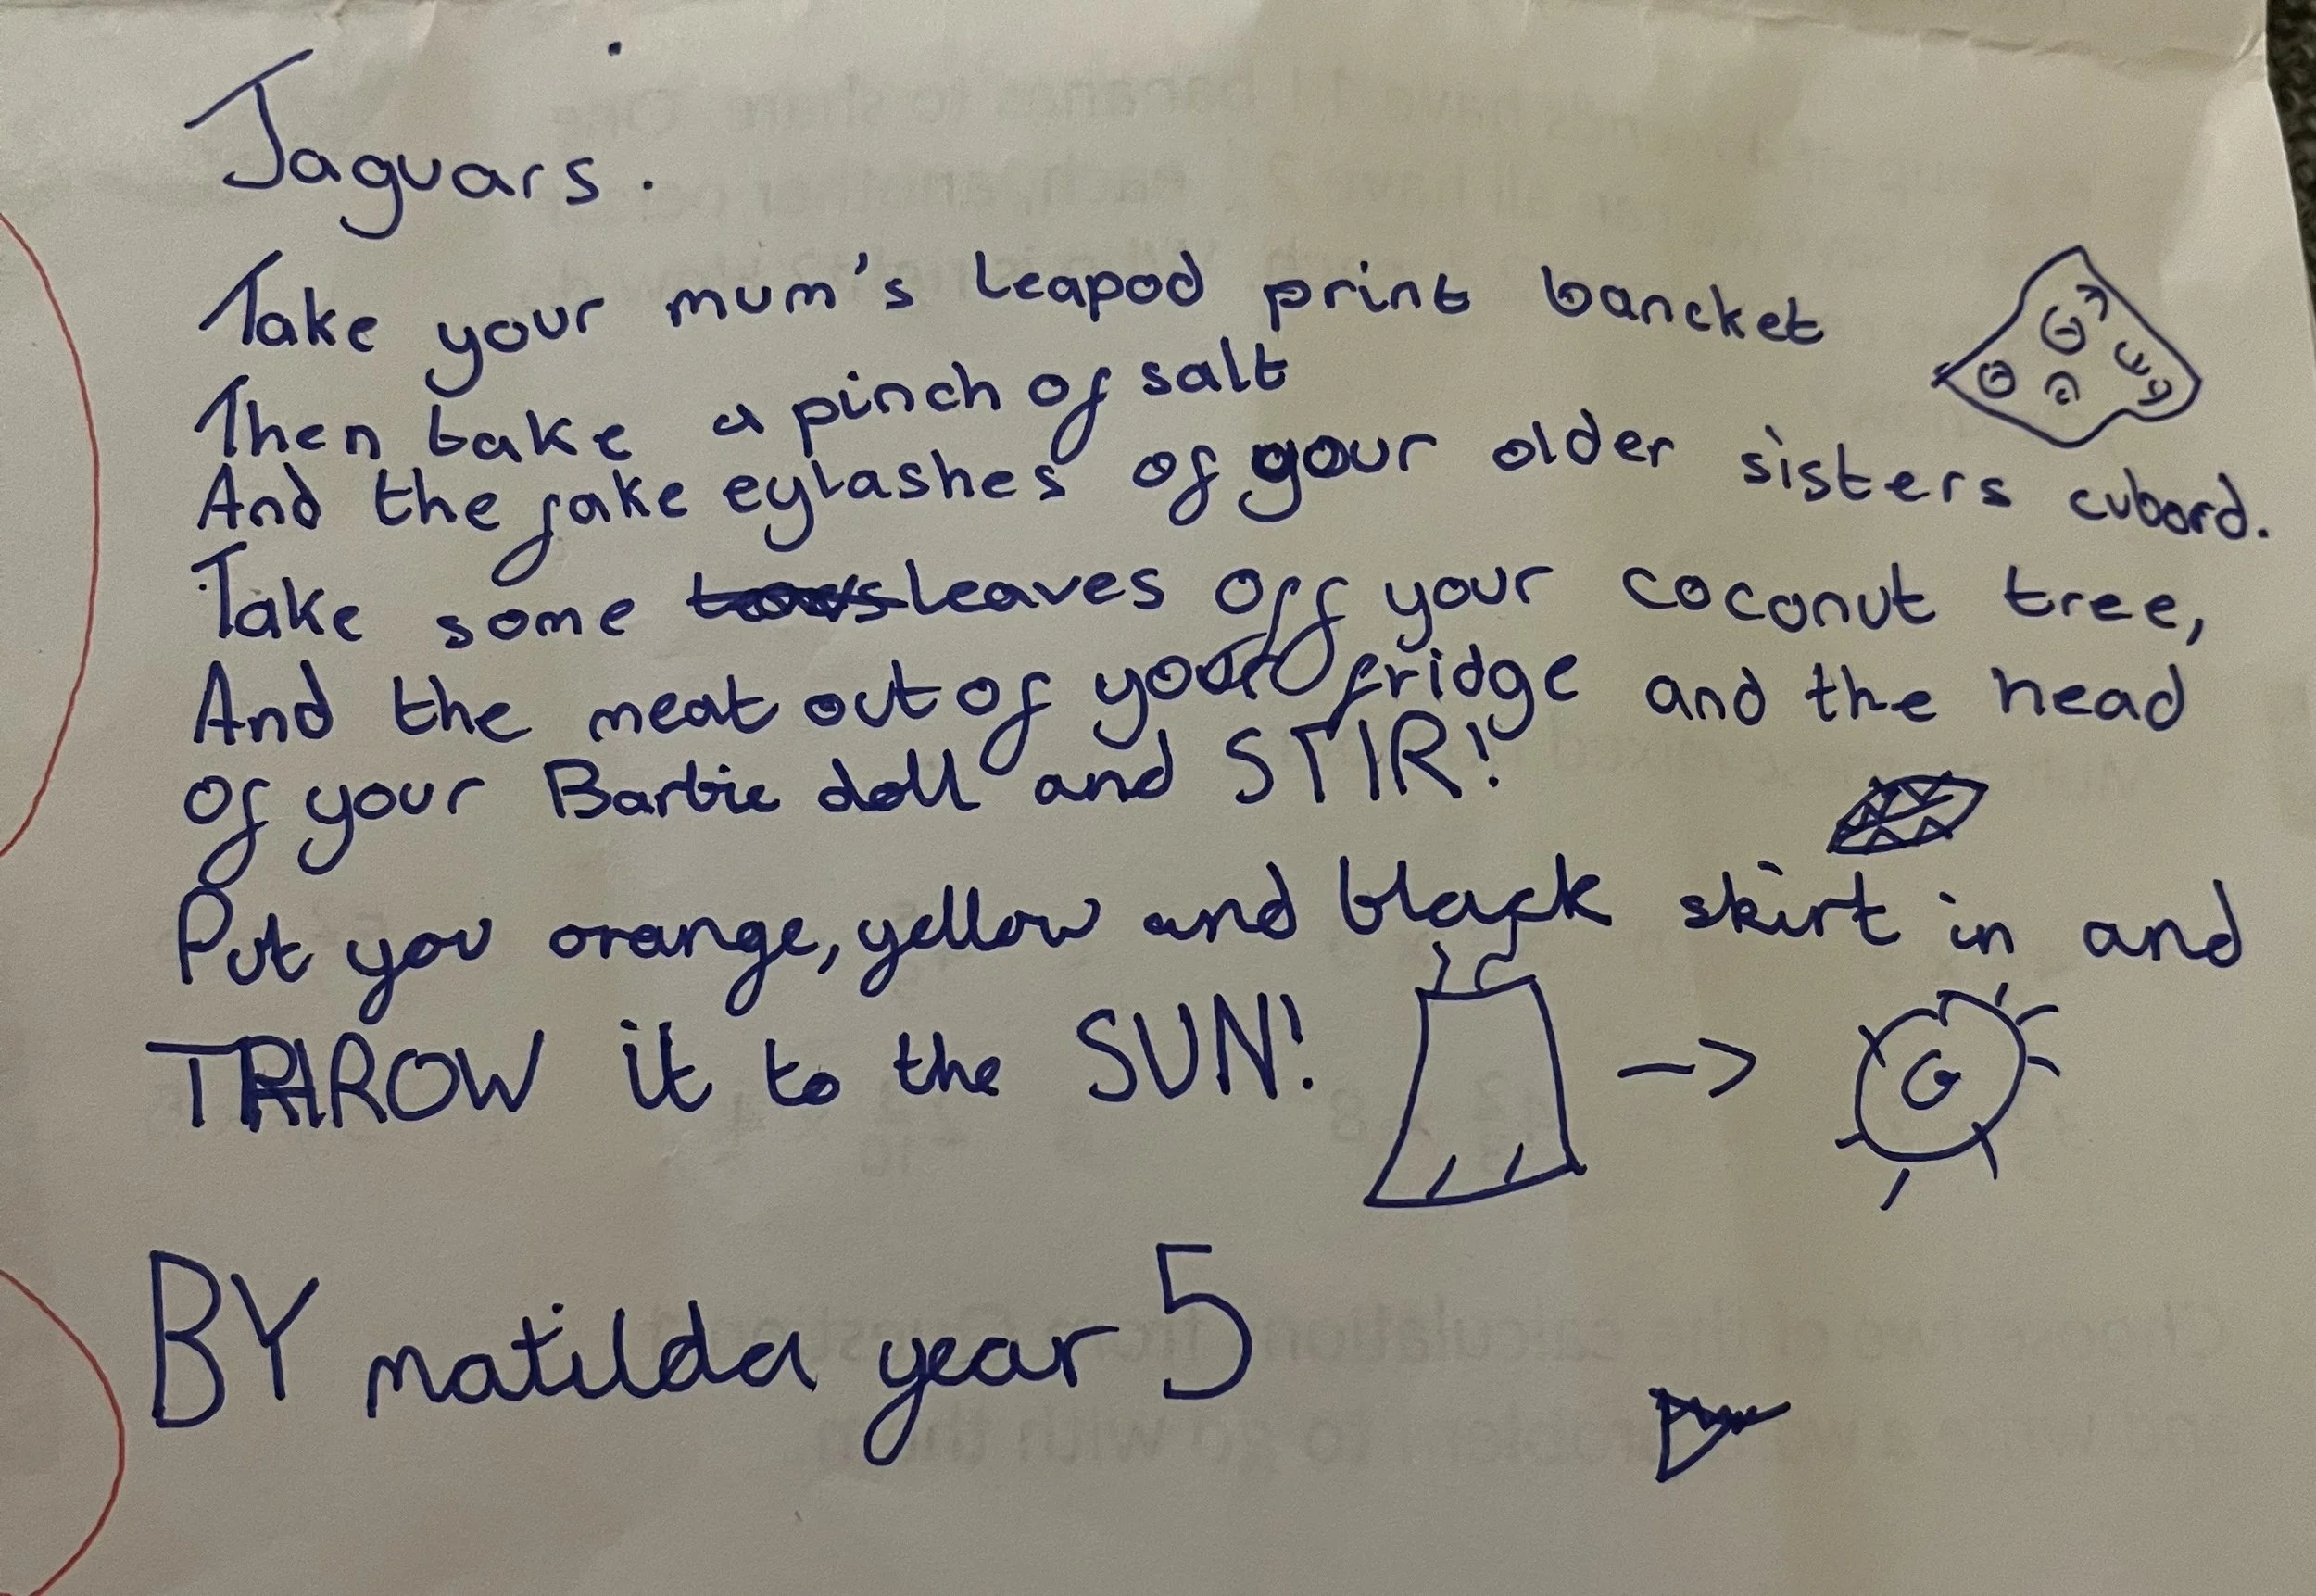 Jaguars.
Take your mum's leapod print bancket
Then take a pinch of salt
And the fake eylashes of your older sisters cubord.
Take some leaves off your coconut tree,
And the meat out of your fridge and the head
of your Barbie doll and STIR!
Put you orange, yellow and black skirt in and
THROW it to the SUN!
BY matilda year 5